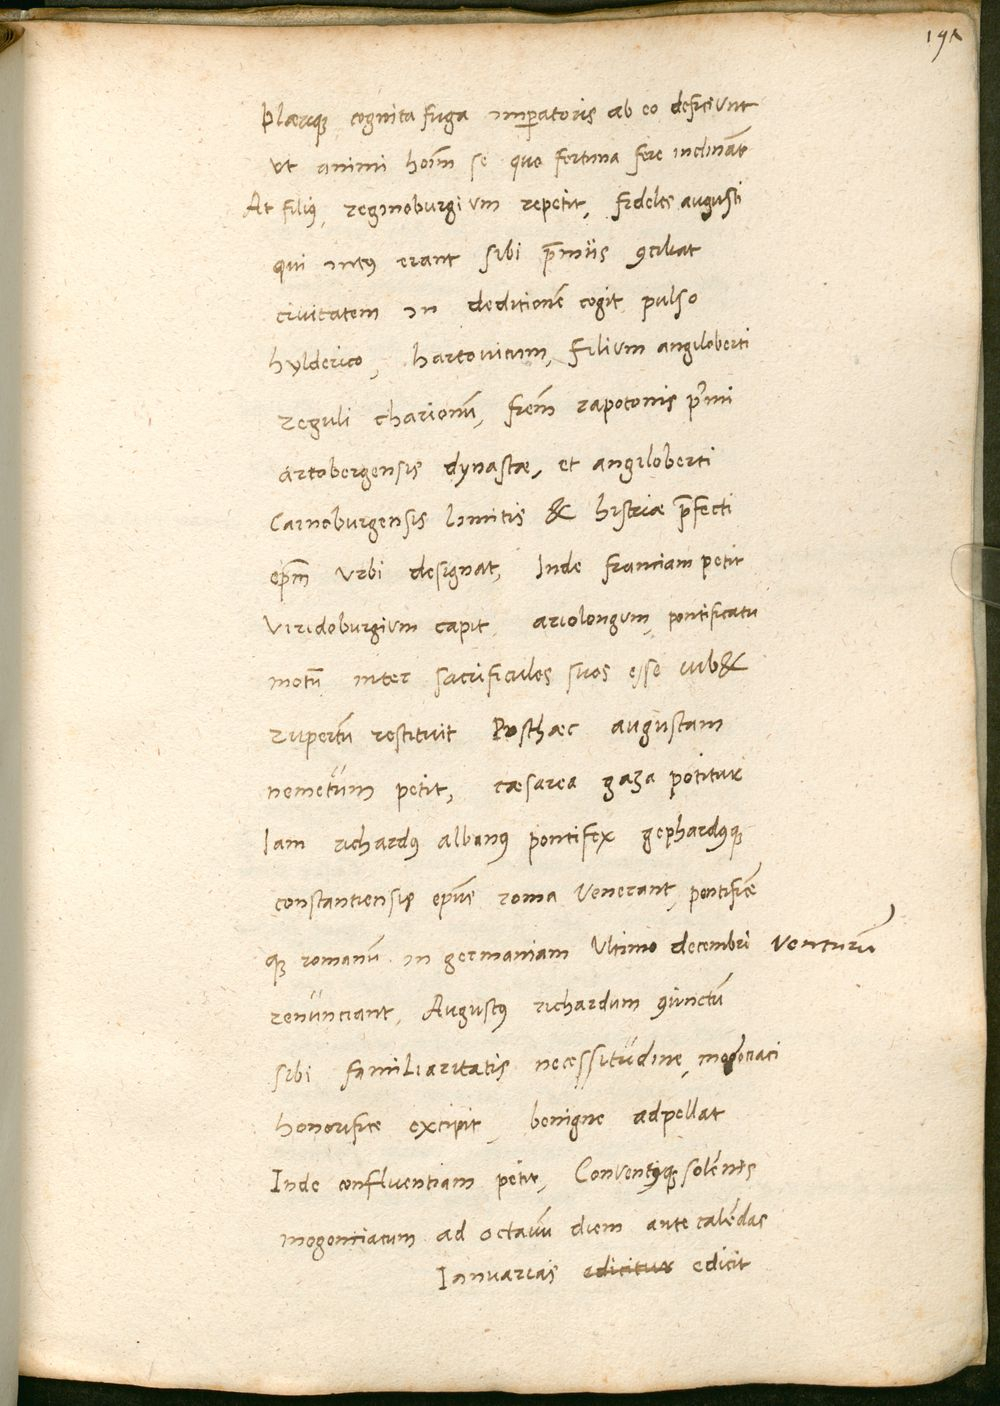 plæriqꝫ cognita fuga imꝑatoris ab eo deficiunt
ut animi hoīm se quo fortuna fere inclināt
At filiꝰ, reginoburgium repetit, fideles augusti
qui intꝰ erant sibi p̄miis ꝯciliat
civitatem in deditionē cogit pulso
hylderico, hartovicum, filium angiloberti
reguli charionū, frēm rapotonis p'mi
artobergensis dynastæ, et angiloberti
Carnoburgensis limitis & histriæ p̄fecti
epm̄ urbi designat, Inde franciam petit
Viridoburgium capit, ariolongum, pontificatu
motū inter sacrificulos suos esse iub&
rupertū restituit Posthaec augustam
nemetum petit, cæsarea gaza potitur
Iam richardꝰ albanꝰ pontifex gephardꝰqꝫ
constantiensis epūs roma venerant, pontificē
qꝫ romanū in germaniam Ultimo decembri venturū
renunciant, Augustꝰ richardum ꝯiunctū
sibi familiaritatis necessitudine, mogociaci
honorifice excipit, benigne adpellat
Inde confluentiam petit, Conventꝰqꝫ solēnes
mogontiacum ad octavū diem ante calēdas
Ianuarias edicitur edicit